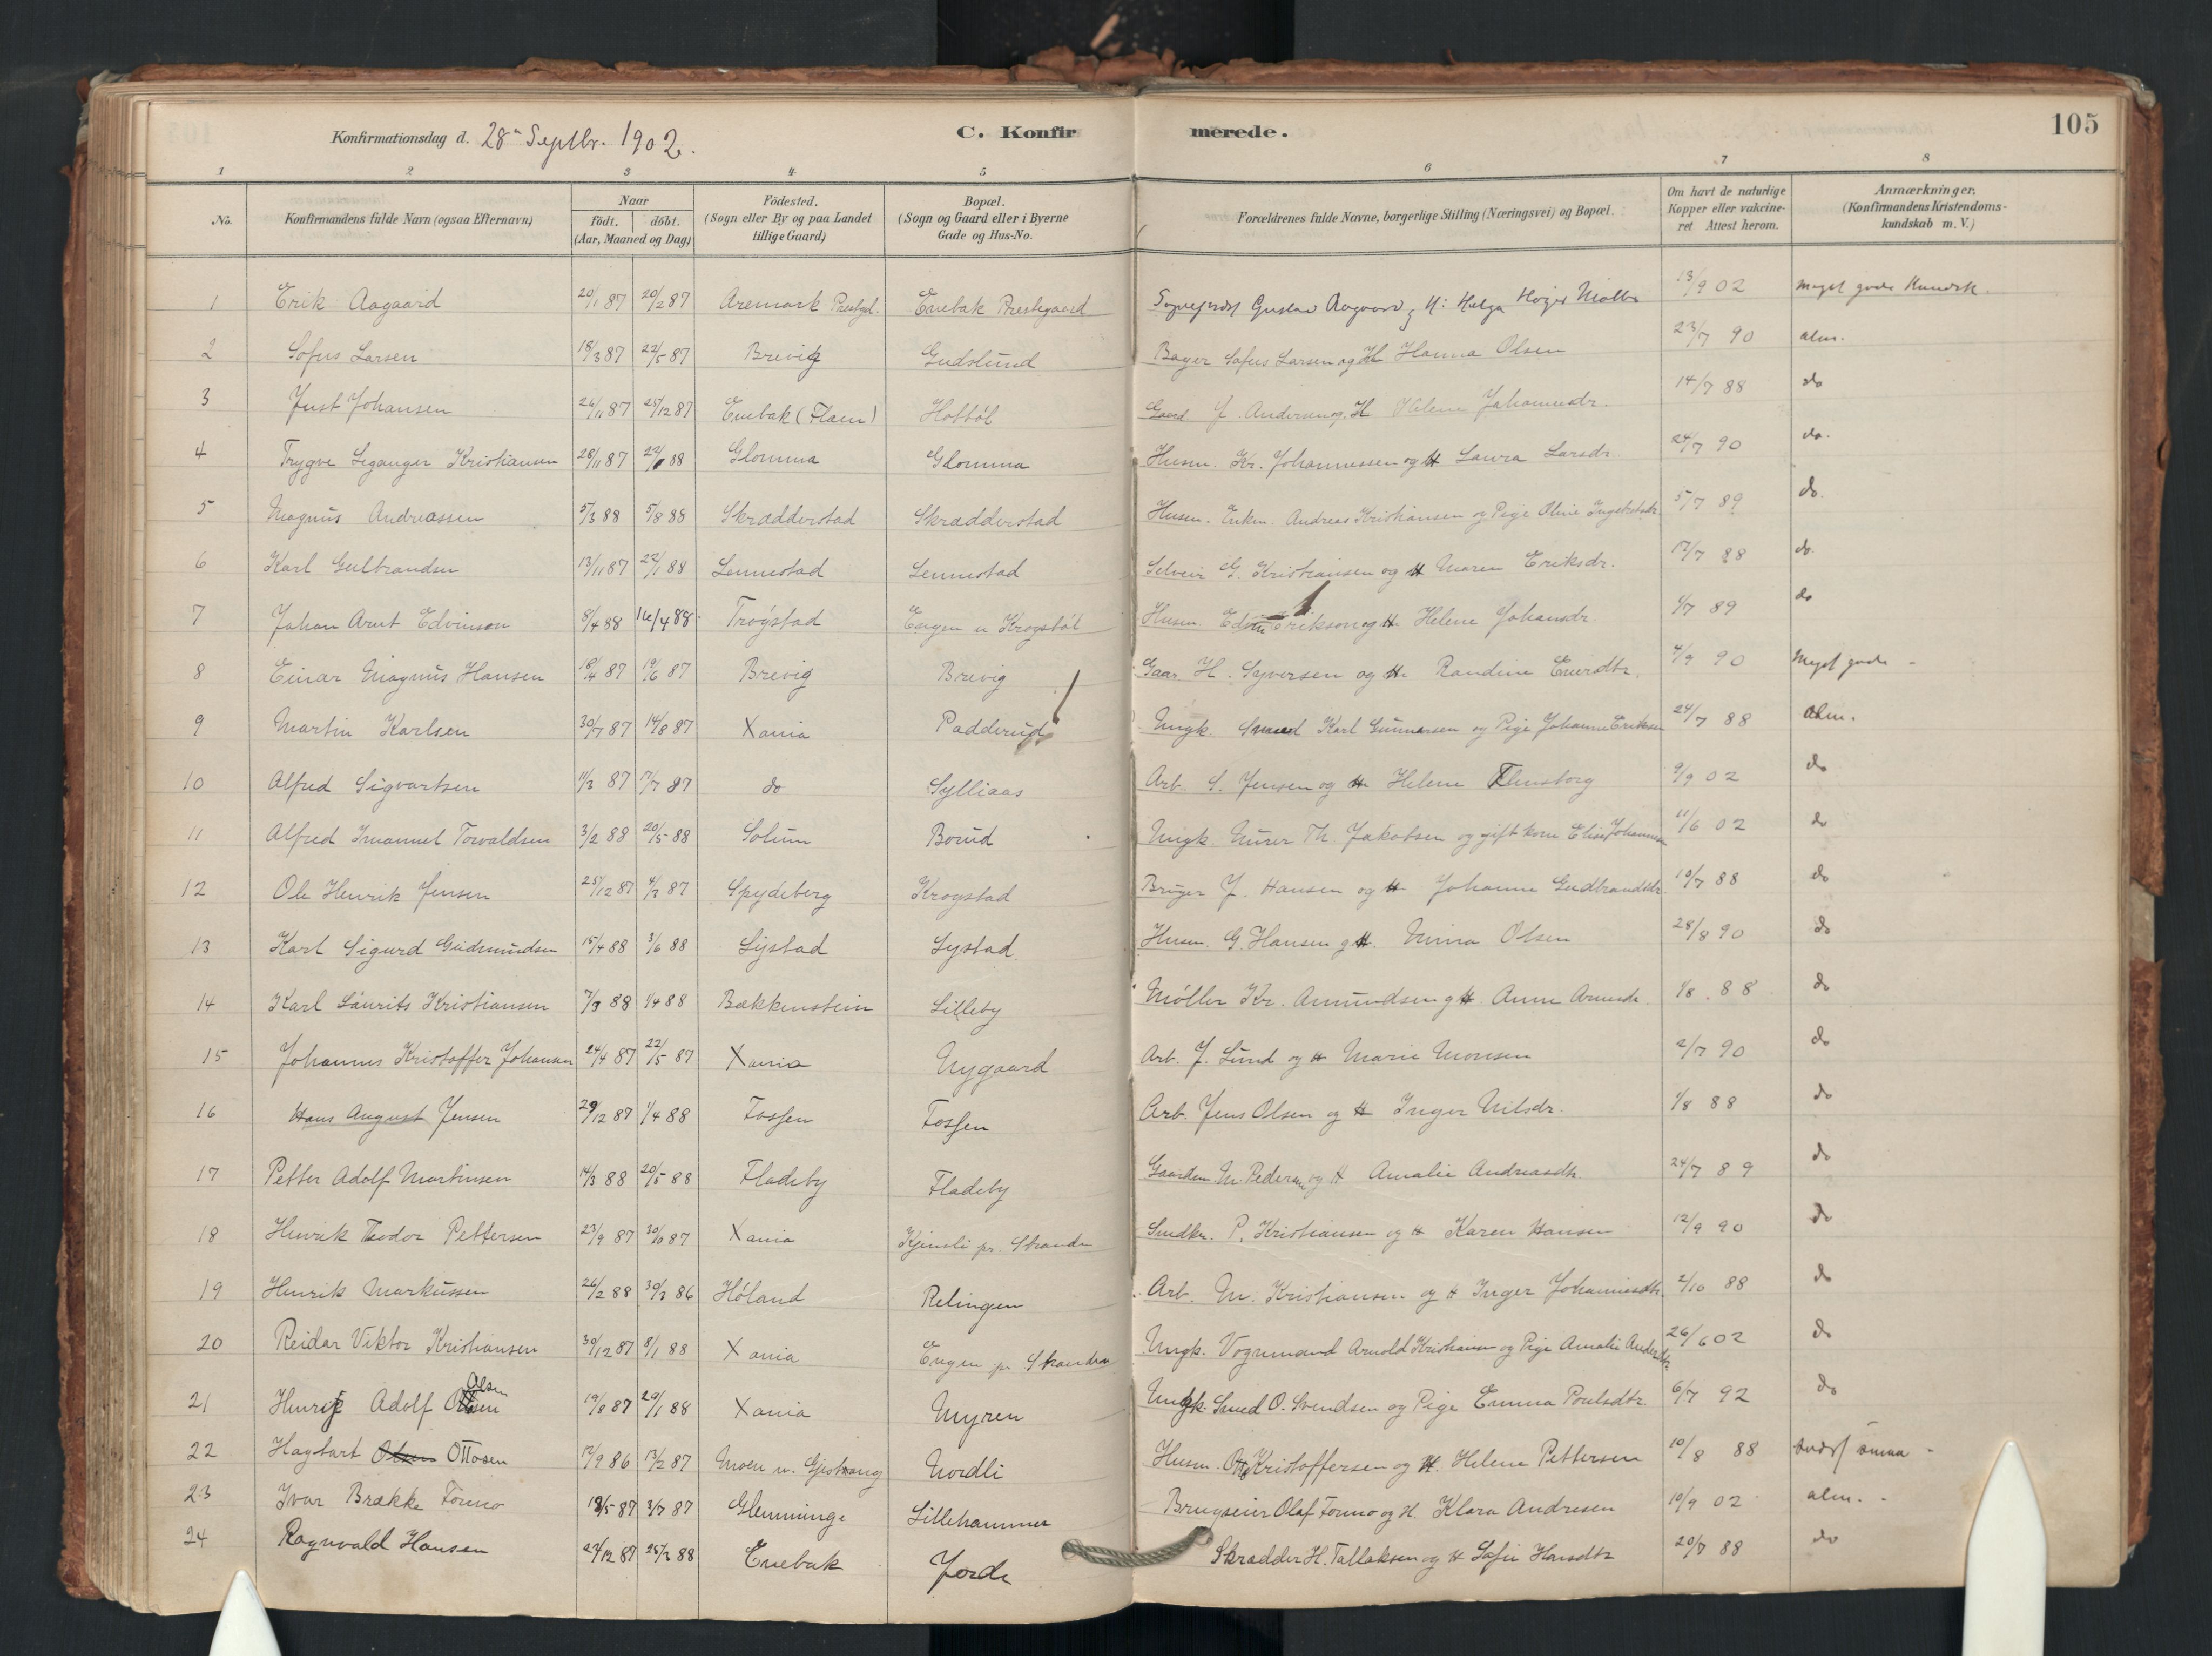 Konfirmationsdag d. 28de Septbr. 1902.
C. Konfirmerede.
105
1 2 3 4 5 6 7 8
No.
Konfirmandens fulde Navn (ogsaa Efternavn)
Naar
födt. döbt.
(Aar, Maaned og Dag)
Födested.
(Sogn eller By og paa Landet
tillige Gaard)
Bopæl.
(Sogn og Gaard eller i Byerne
Gade og Hus-No.
Forældrenes fulde Navne, borgerlige Stilling (Næringsvei) og Bopæl.
Om havt de naturlige
Kopper eller vakcine-
ret Attest herom.
Anmærkninger.
(Konfirmandens Kristendoms-
kundskab m. V.)
1 Erik Aagaard 20/1 87 20/2 87 Aremark Prestgd. Enebak Prestegaard Sogneprest Gustav Aagaard og H: Helga Høyer Møller 13/9 02 Meget gode Kundsk.
2 Sofus Larsen 18/3 87 22/5 87 Brevig Gudslund Bager Sofus Larsen og H Hanna Olsen 23/7 90 alm.
3 Just Johansen 26/11 87 25/12 87 Enebak (Flaen) Hottöl Gaard J. Andersen og H Helene Johannesdr. 14/7 88 do
4 Trygve Leganger Kristiansen 28/11 87 22/1 88 Glomma Glomma Husm. Kr. Johannessen og H Laura Larsdr. 24/7 90 do.
5 Magnus Andreassen 5/3 88 5/8 88 Skrædderstad Skrædderstad Husm. Enkem. Andreas Kristiansen og Pige Oline Ingebretsdr. 5/7 89 do.
6 Karl Gulbrandsen 13/11 87 22/1 88 Lennestad Lennestad Selveier G. Kristiansen og H Maren Eriksdr. 17/7 88 do.
7 Johan Arnt Edvinson 8/4 88 16/4 88 Tröystad Engen u Krogstöl Husm. Edvin Erikson og H. Helene Johansdr. 4/7 89 do
8 Einar Magnus Hansen 18/4 87 19/6 87 Brevig Brevig Gaar. H. Syversen og H. Randine Enersdtr. 4/9 90 Meget gode -
9 Martin Karlsen 30/7 87 14/8 87 Xania Padderud Ungk. Smed Karl Gunnarsen og Pige Johanne Eriksen 24/7 88 Alm.
10 Alfred Sigvartsen 11/3 87 17/7 87 do Sylliaas Arb. S. Jensen og H. Helene Flensborg 9/9 02 do
11 Alfred Imanuel Torvaldsen 3/2 88 20/5 88 Solum Borud Ungk Murer Th. Jakobsen og gift kone Elise Johannsen 11/6 02 do
12 Ole Henrik Jensen 25/12 87 4/3 87 Spydeberg Krogstad Bruger J. Hansen og H. Johanne Gudbrandsdtr. 10/7 88 do
13 Karl Sigurd Gudmundsen 15/4 88 3/6 88 Systad Systad Husm. G. Hansen og H. Mina Olsen 28/8 90 do
14 Karl Laurits Kristiansen 7/3 88 1/4 88 Bækkenstein Lilleby Møller Kr. Amundsen og H Anne Amunds. 1/8. 88 do
15 Johannes Kristoffer Johansen 24/4 87 22/5 87 Xania Nygaard Arb. J. Lund og H Marie Monsen 2/7 90 do
16 Hans August Jensen 29/12 87 1/4 88 Fossen Fossen Arb. Jens Olsen og H Inger Nilsdr. 1/8 88 do
17 Petter Adolf Martinsen 14/3 88 20/5 88 Fladeby Fladeby Gaardm. M. Pedersen og H Amalie Andreasdtr. 24/7 89 do
18 Henrik Teodor Pettersen 23/9 87 30/10 87 Xania Kjensli pr. Stranden Snedker. P. Kristiansen og H Karen Hansen 12/9 90 do
19 Henrik Markussen 26/2 88 30/3 86 Höland Relingen Arb. M. Kristiansen og H Inger Johannesdtr. 2/10 88 do
20 Reidar Viktor Kristiansen 30/12 87 8/1 88 Xania Engen pr Stranden Ungk. Vognmand Arnold Kristiansen og Pige Amalie Andersdtr. 26/6 02 do
21 Henrik Adolf Olsen 19/8 87 29/1 88 Xania Myren Ungk. Smed O. Svendsen og Pige Emma Poulsdtr. 6/7 92 do
22 Hagbart Olsen Ottosen 12/9 86 13/2 87 Moen u. Gjestvang Nordli Husm. Otto Kristoffersen og H. Helene Pettersen 10/8 88 smaa -
23 Ivar Brække Formo 18/5 87 3/7 87 Glemminge Lillehammer Brugseier Olaf Formo og H. Klara Andresen 10/9 02 alm. -
24 Ragnvald Hansen 27/12 87 25/3 88 Enebak Jorde Skrædder H. Tallaksen og H Sofie Hansdtr 20/7 88 do